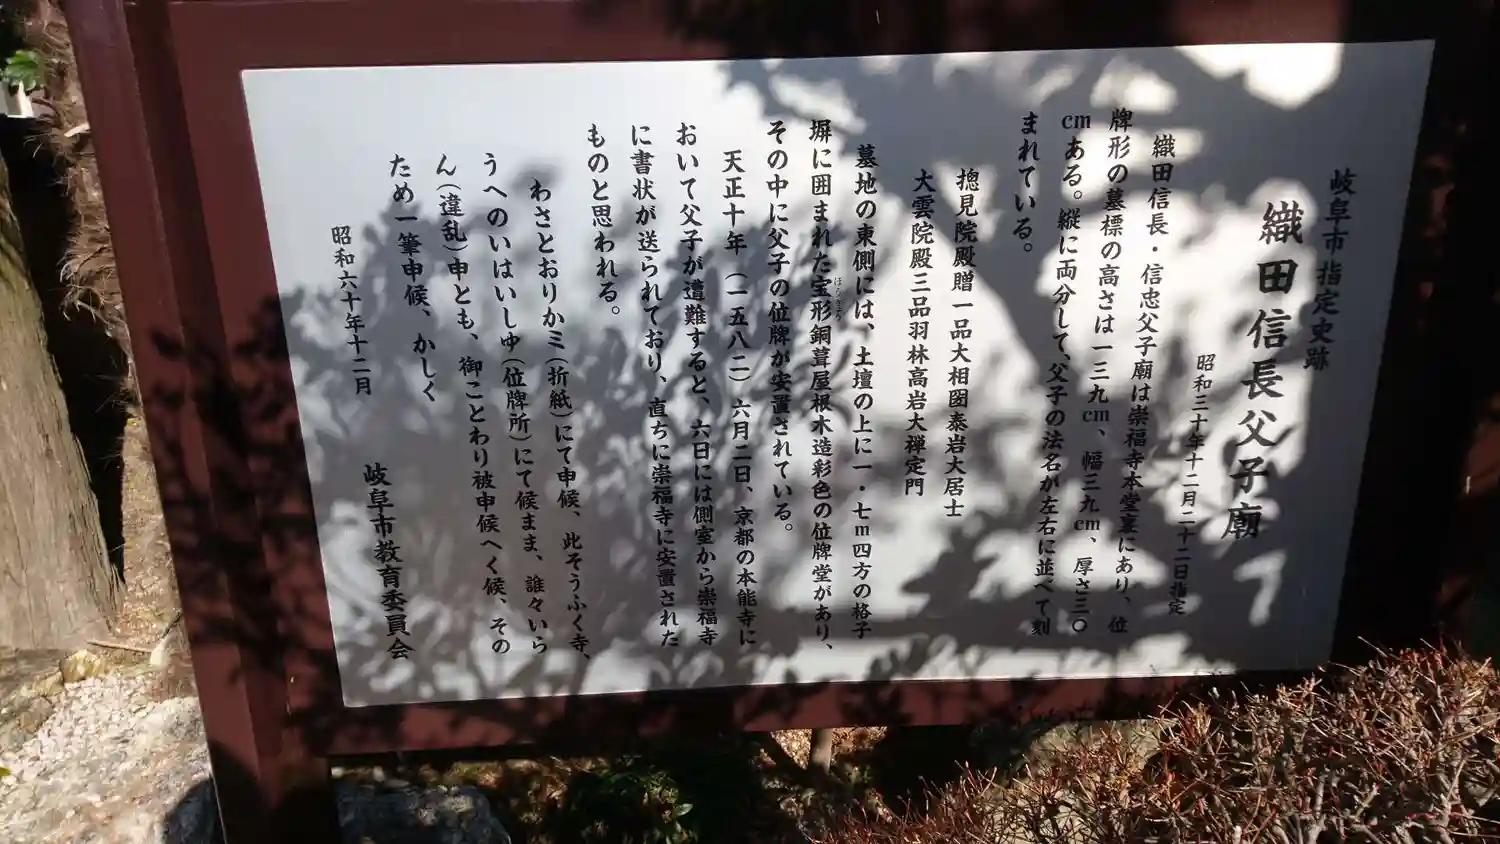 岐阜市指定史跡
織田信長父子廟
昭和三十年十二月二十二日指定
織田信長・信忠父子廟は崇福寺本堂裏にあり、位
牌形の墓標の高さは一三九cm、幅三九cm、厚さ三〇
cmある。縦に両分して、父子の法名が左右に並べて刻
まれている。
摠見院殿贈一品大相圀泰岩大居士
大雲院殿三品羽林高岩大禅定門
墓地の東側には、土壇の上に一・七m四方の格子
塀に囲まれた宝形銅葺屋根木造彩色の位牌堂があり、
その中に父子の位牌が安置されている。
天正十年(一五八二)六月二日、京都の本能寺に
おいて父子が遭難すると、六日には側室から崇福寺
に書状が送られており、直ちに崇福寺に安置された
ものと思われる。
わさとおりかミ(折紙)にて申候、此そうふく寺、
うへのいはいしゆ(位牌所)にて候まま、誰々いら
ん(違乱)申とも、御ことわり被申候へく候、その
ため一筆申候、かしく
昭和六十年十二月
岐阜市教育委員会